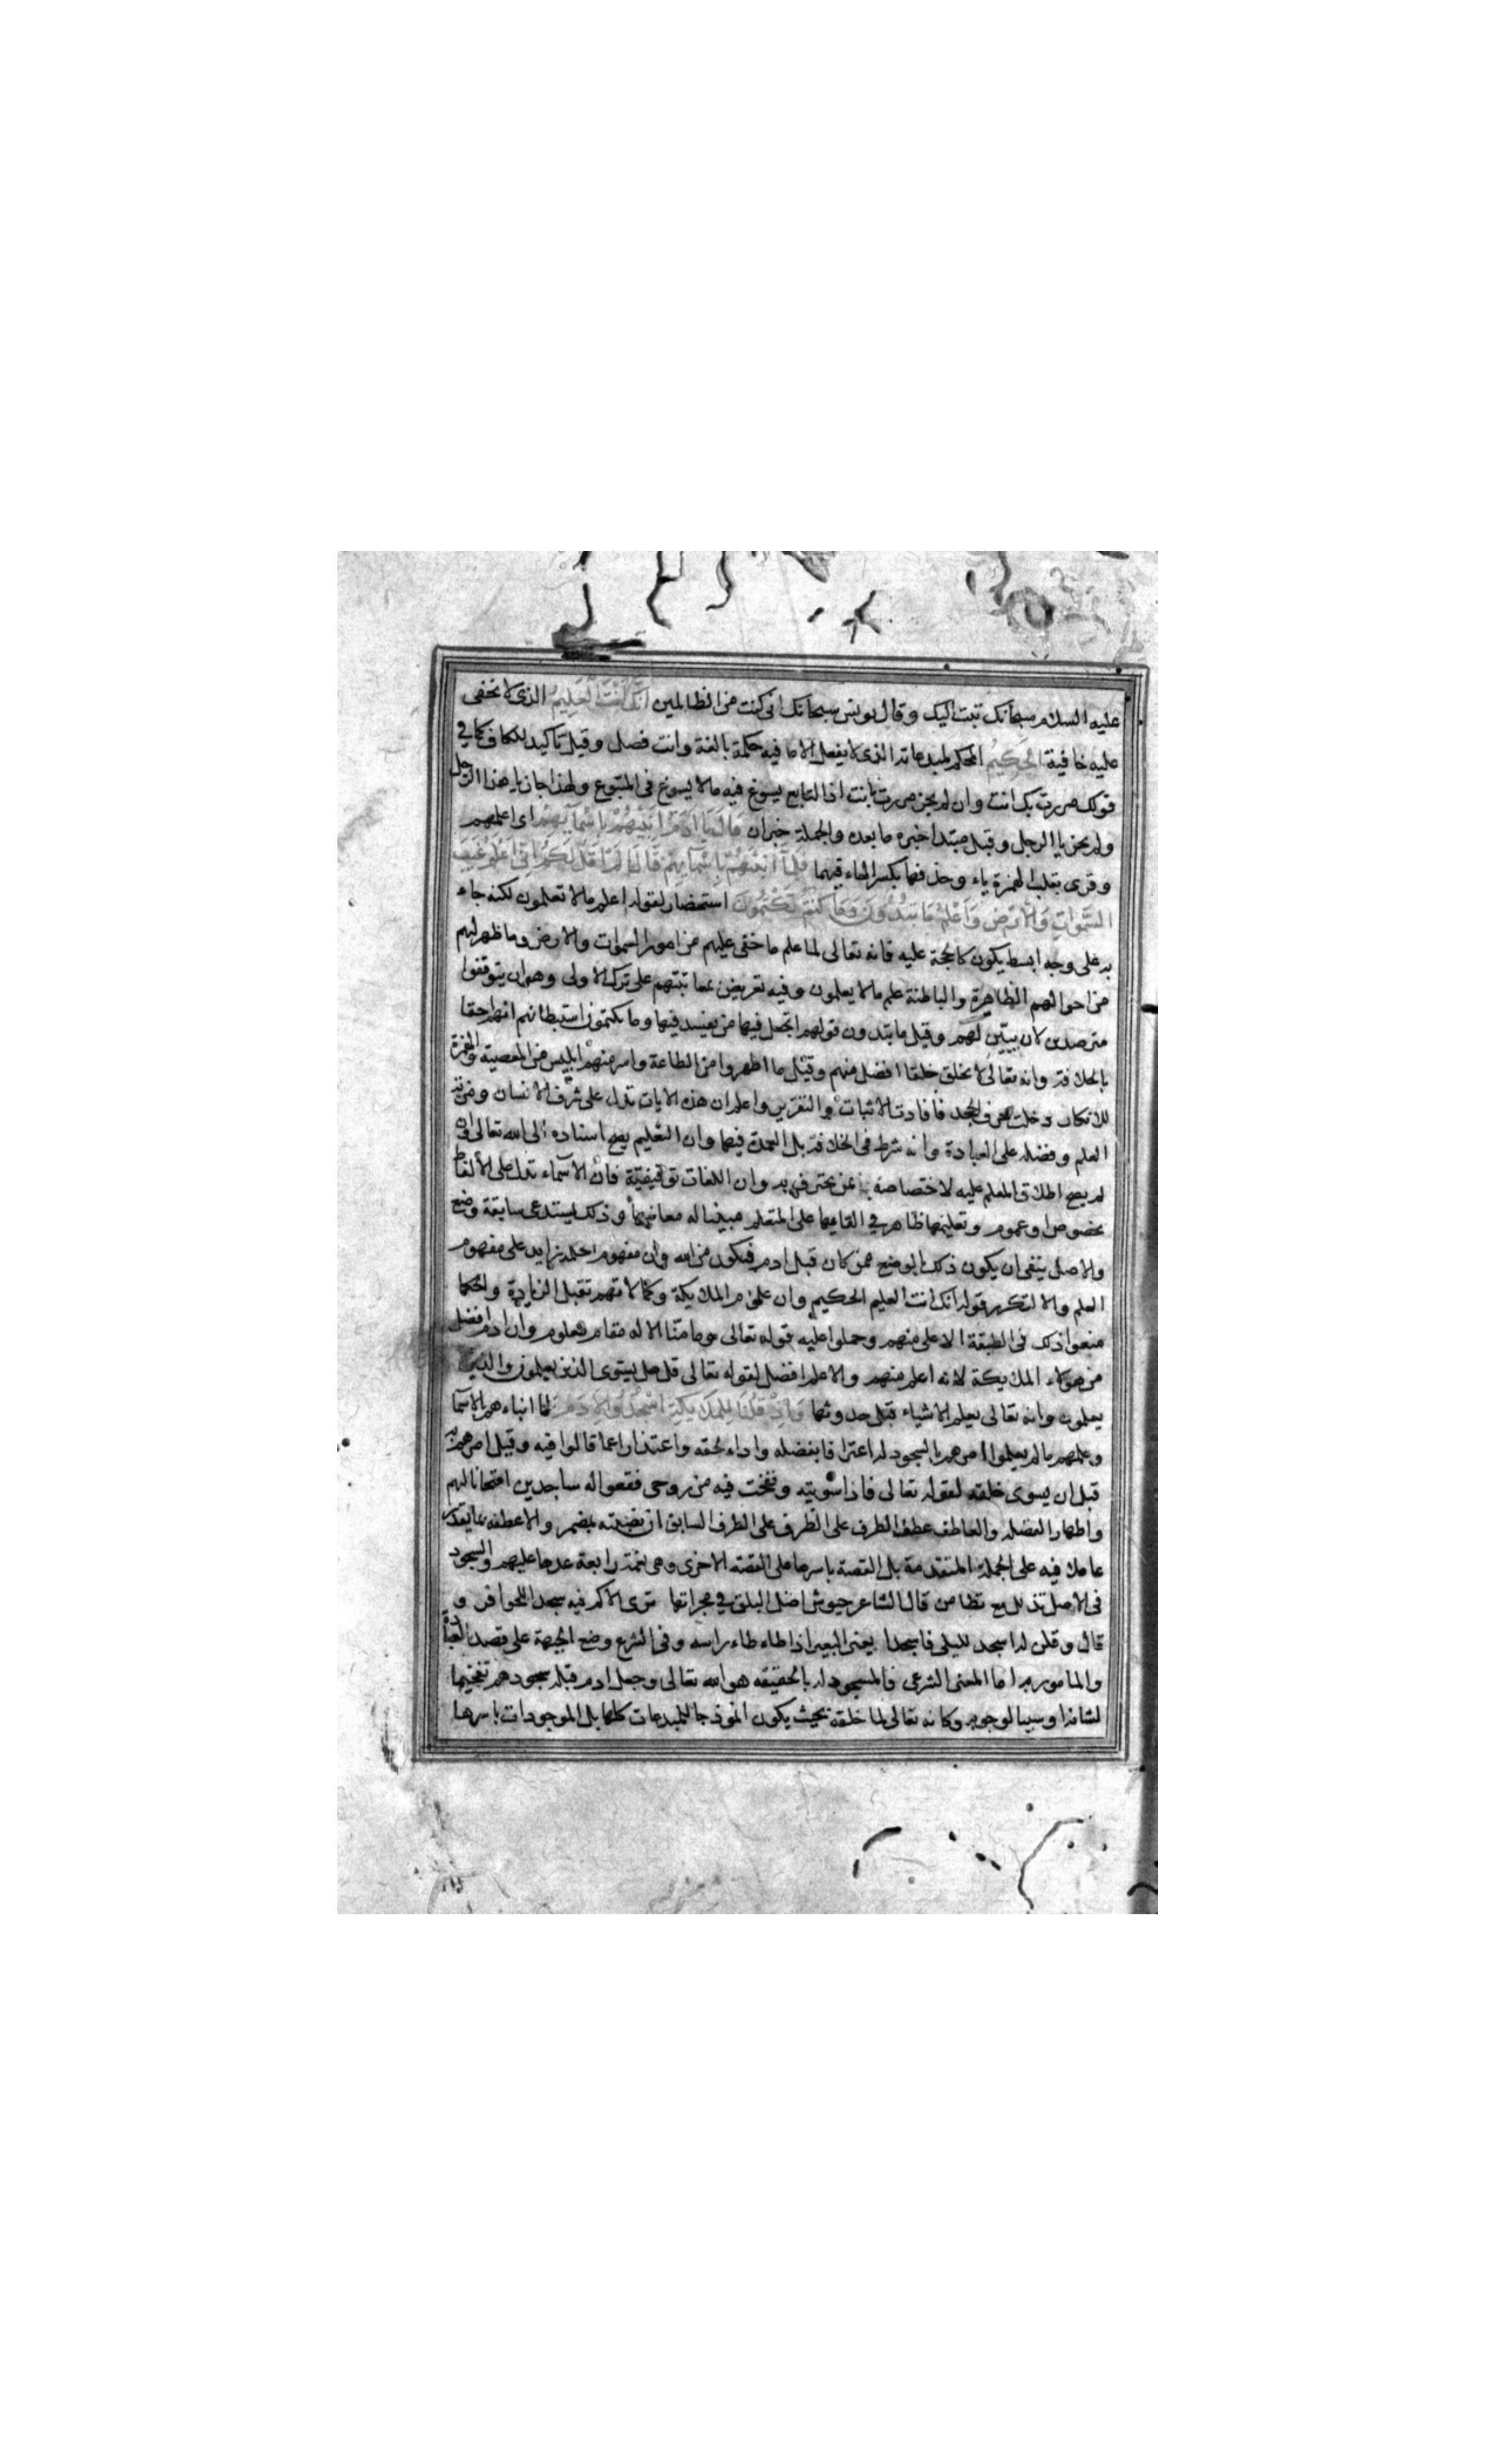 عليه السلام سبحانك تبت اليك وقال يونس سبحانك انى كنت من الظالمين انك انت العليم الذى لا تخفى
عليه خافية الحكيم المحكم لمبدعاته الذى لا يفعل الا ما فيه حكمة بالغة وانت فصل وقيل تاكيد للكاف كما في
قولك مررت بك انت وان لم يجز مررت بانت اذ التابع يسوغ فيه ما لا يسوغ فى المتبوع ولهذا جاز يا هذا الرجل
ولم يجز يا الرجل وقيل مبتدا خبره ما بعده والجملة خبر ان قال يا ادم انبئهم باسمائهم اى اعلمهم
وقرى بقلب الهمزة ياء وحذفها بكسر الهاء فيهما فلما انبئهم باسمائهم قال الم اقل لكم انى اعلم غيب
السموات والارض واعلم ما تبدون وما كنتم تكتمون استحضار لقوله اعلم ما لا تعلمون لكنه جاء
به على وجه ابسط يكون كالحجة عليه فانه تعالى لما علم ما خفى عليهم من امور السموات والارض وما ظهر لهم
من احوالهم الظاهرة والباطنة علم ما لا يعلمون وفيه تعريض بمعاتبتهم على ترك الاولى وهو ان يتوقفوا
مترصدين لان يبين لهم وقيل ما تبدون قولهم اتجعل فيها من يفسد فيها وما تكتمون استبطانهم انهم احقا
بالخلافة وانه تعالى لا يخلق خلقا افضل منهم وقيل ما اظهروا من الطاعة واسر منهم ابليس من المعصية والهمزة
للانكار دخلت حرف الجحد فافادت الاثبات والتقرير واعلم ان هذه الايات تدل على شرف الانسان ومزية
العلم وفضله على العبادة وانه شرط فى الخلافة بل العمدة فيها وان التعليم يصح اسناده الى الله تعالى وان
لم يصح اطلاق المعلم عليه لاختصاصه بمن يحترف به وان اللغات توقيفية فان الاسماء تدل على الالفاظ
بخصوص او عموم وتعليمها ظاهر في القائها على المتعلم مبينا له معانيها وذلك يستدعى سابقة وضع
والاصل ينفى ان يكون ذلك الوضع ممن كان قبل ادم فيكون من الله وان مفهوم الحكمة زايد على مفهوم
العلم والا لتكرر قوله انك انت العليم الحكيم وان علوم الملايكة وكمالاتهم تقبل الزيادة والحكما
منعوا ذلك فى الطبقة الاعلى منهم وحملوا عليه قوله تعالى وما منا الا له مقام معلوم وان ادم افضل
من هولاء الملايكة لانه اعلم منهم والاعلم افضل لقوله تعالى قل هل يستوى الذين يعلمون والذين لا
يعلمون وانه تعالى يعلم الاشياء قبل حدوثها واذ قلنا للملايكة اسجدوا لادم لما انباءهم بالاسما
وعلمهم ما لم يعلموا امرهم بالسجود له اعترافا بفضله واداء لحقه واعتذارا عما قالوا فيه وقيل امرهم به
قبل ان يسوى خلقه لقوله تعالى فاذا سويته ونفخت فيه من روحى فقعوا له ساجدين امتحانا لهم
واظهارا لفضله والعاطف عطف الظرف على الظرف على الظرف السابق ان نصبته بمضمر والا عطفه بما يقدر
عاملا فيه على الجملة المتقدمة بل القصة باسرها على القصة الاخرى وهى نعمة رابعة عدها عليهم والسجود
فى الاصل تذلل مع تطامن قال الشاعر جيوش اضل البلق في حجراتها ترى الاكم فيه سجدا للحوافر و
قال وقلن له اسجد لليلى فاسجدا يعنى البعير اذا طاء طاء راسه وفى الشرع وضع الجبهة على قصد العبادة
والمامور به اما المعنى الشرعى فالمسجود له بالحقيقه هو الله تعالى وجعل ادم قبلة سجودهم تفخيما
لشانه او سببا لوجوبه وكانه تعالى لما خلقه بحيث يكون انموذجا للمبدعات كلها بل الموجودات باسرها